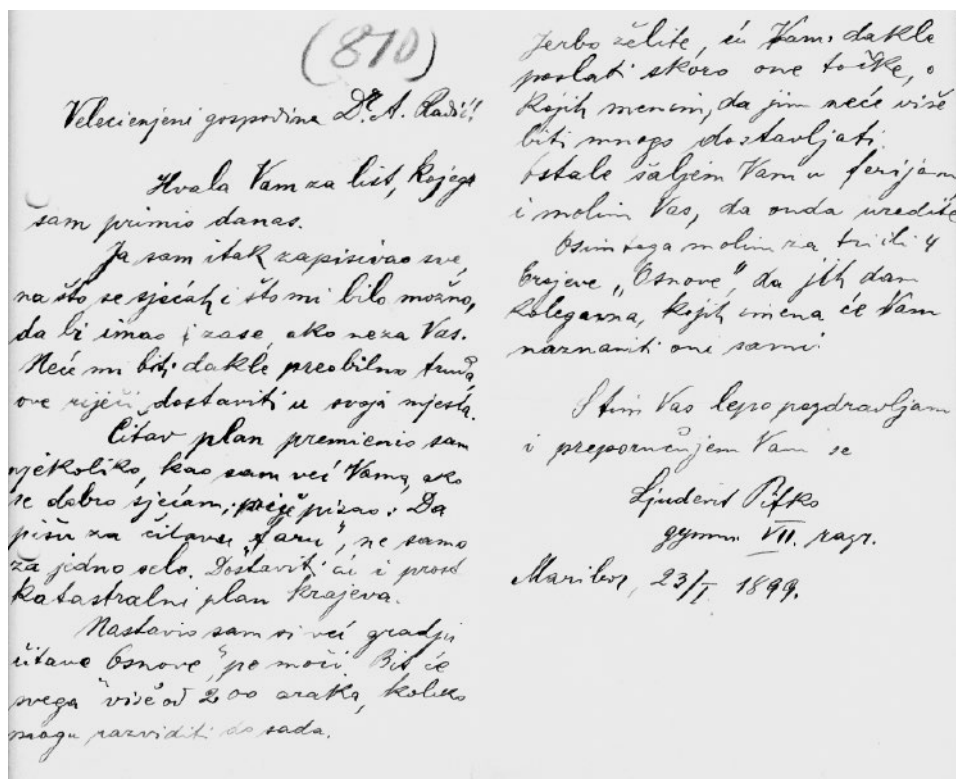 (810)
Velecienjeni gospodine Dr. A. Radić!
Hvala Vam za list, kojega
sam primio danas.
Ja sam itak zapisivao sve,
na što se sjećah i što mi bilo možno,
da bi imao i zase, ako neza Vas.
Neće mi biti dakle preobilno truda,
ove riječi dostaviti u svoja mjesta.
Čitav plan premienio sam
nješkoliko, kao sam već Vama, ako
se dobro sjećam, prije pisao: Da
pišu za čitavu "faru", ne samo
za jedno selo. Dostaviti ću i prost
katastralni plan krajeva.
Nastavio sam si već gradju
čitave "Osnove", po moći. Bit će
svega više od 200 araka, koliko
mogu razviditi do sada.
Jerbo želite, ću Vam dakle
poslati skoro one točke, o
kojih menim, da jim neće više
biti mnogo dostavljati.
Ostale šaljem Vam u ferijam
i molim Vas, da onda uredite
Osim toga molim za tri ili 4
brojeve "Osnove", da jih dam
kolegama, kojih imena će Vam
naznaniti oni sami.
S tim Vas lepo pozdravljam
i preporučujem Vam se
Ljudevit Pifko
gymn. VII. razr.
Maribor, 23/I 1899.